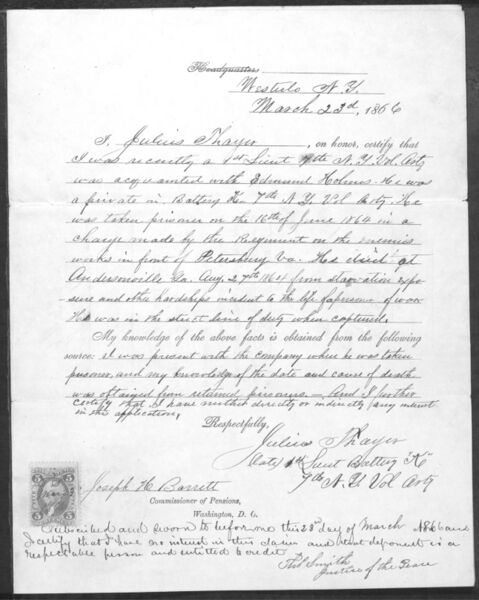 Headquarters
Westerlo N. Y.
March 23d, 1866
I, Julius Thayer, on honor, certify that
I was recently a 1st Lieut 7th N. Y. Vol. Arty
was acquainted with Edmund Holmes. He was
a private in Battery 7th N. Y. Vol Arty. He
was taken prisoner on the 16th of June 1864 in a
charge made by the Regiment on the enemies
works in front of Petersburg Va. He died at
Andersonville Ga. Aug. 27th 1864 from starvation expo-
sure and other hardships incident to the life of a prisoner of war
He was in the strict line of duty when captured.
My knowledge of the above facts is obtained from the following
source: I was present with the company when he was taken
prisoner, and my knowledge of the date and cause of death
was obtained from returned prisoners. — And I further
certify that I have neither directly or indirectly any interest
in the application.
Respectfully,
Julius Thayer
Late 1st Lieut Battery "K"
7th N. Y. Vol Arty
Joseph H. Barrett
Commissioner of Pensions,
Washington, D. C.
Subscribed and sworn to before me this 23d day of March 1866 and
I certify that I have no interest in this claim and that deponent is a
respectable person and entitled to credit
Smith
Justice of the Peace